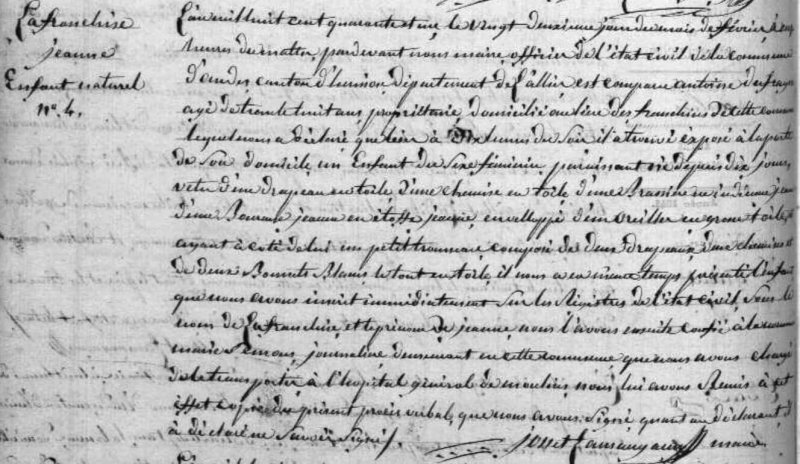 Lafranchise
jeanne
Enfant naturel
n°. 4.
L'an mil huit cent quarante et un le vingt deuxieme jour du mois de février à
heures du matin, pardevant nous maire, officier de l'état civil de la commune
d'audes canton d'hurison département de l'allier est comparu antoine
agé de trente huit ans, propriétaire, domicilié au lieu des franchises de cette commune
lequel nous a déclaré que hier à dix heures du soir il a trouvé exposé à la porte
de son domicile, un Enfant du sixe féminin, paraissant né depuis dix jours
vetu d'un drapeau en toile d'une chemise en toile d'une Brassière en indienne
d'une jeaune en étoffe jeaune, enveloppé d'un oreiller en grosse toile,
ayant à coté de lui un petit trousseau composé de deux drapeaux, d'une chemise et
de deux Bonnets Blancs le tout en toile, il nous a en meme temps présenté l'enfant
que nous avons inscrit immédiatement sur les Registres de l'état civil, sous le
nom de Lafranchise, et le prénom de jeanne, nous l'avons ensuite confié à la
marie journaliere demeurant en cette commune que nous avons chargé
de le transporter à l'hopital général de moulins, nous lui avons Remis à cet
effet copie du présent procès verbal, que nous avons signé quant au déclarant, il
à déclaré ne savoir signer.
maire